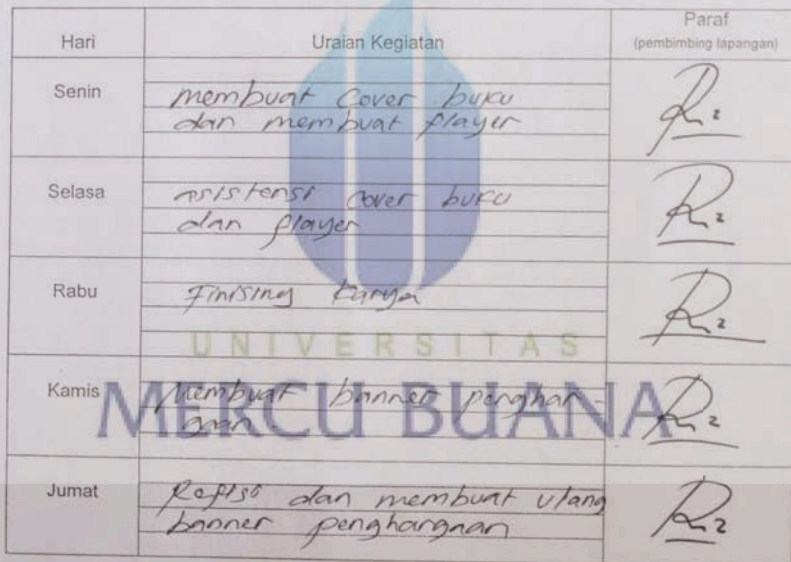 Hari
Uraian Kegiatan
Paraf
(pembimbing lapangan)
Senin
membuat cover buku
dan membuat flayer
Selasa
asistensi cover buku
dan flayer
Rabu
Finising karya
UNIVERSITAS
Kamis
Membuat banner penghar-
gaan
MERCU BUANA
Jumat
Refisi dan membuat ulang
banner penghargaan